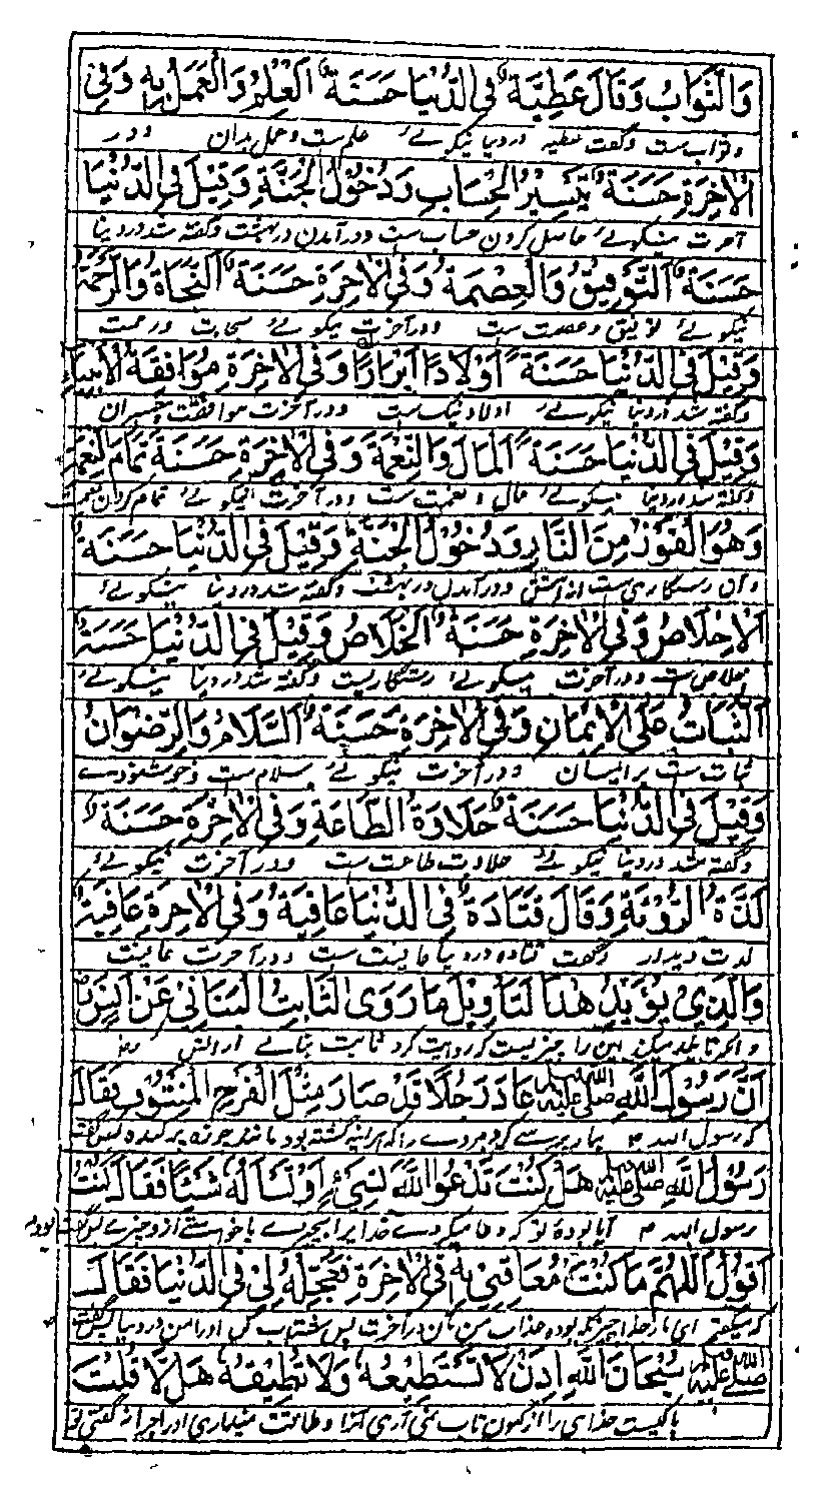 وَالثَّوَابُ وَقَالَ عَطِيَّةُ فِي الدُّنْيَا حَسَنَةً الْعِلْمُ وَالْعَمَلُ بِهِ وَفِي
وثواب ست وگفت عطیه در دنیا نیکوئے علم ست وعمل بدان ودر
الْاٰخِرَةِ حَسَنَةً تَيْسِيْرُ الْحِسَابِ وَدُخُوْلُ الْجَنَّةِ وَقِيْلَ فِي الدُّنْيَا
آخرت نیکوئے حاصل کردن حساب ست ودر آمدن در بهشت وگفته شد در دنیا
حَسَنَةً التَّوْفِيْقُ وَالْعِصْمَةُ وَفِي الْاٰخِرَةِ حَسَنَةً النَّجَاةُ وَالرَّحْمَةُ
نیکوئے توفیق وعصمت ست ودر آخرت نیکوئے نجات ورحمت
وَقِيْلَ فِي الدُّنْيَا حَسَنَةً اَوْلَادًا اَبْرَارًا وَفِي الْاٰخِرَةِ مُوَافَقَةُ الْاَنْبِيَاءِ
وگفته شد در دنیا نیکوئے اولاد نیک ست ودر آخرت موافقت پیغمبران
وَقِيْلَ فِي الدُّنْيَا حَسَنَةً الْمَالَ وَالنِّعْمَةَ وَفِي الْاٰخِرَةِ حَسَنَةً تَمَامُ النِّعْمَةِ
وگفته شد در دنیا نیکوئے مال ونعمت ست ودر آخرت نیکوئے تمام کردن نعمت
وَهُوَ الْفَوْزُ مِنَ النَّارِ وَدُخُوْلُ الْجَنَّةِ وَقِيْلَ فِي الدُّنْيَا حَسَنَةً
وآن رستگاری ست از آتش ودر آمدن در بهشت وگفته شد در دنیا نیکوئے
الْاِخْلَاصُ وَفِي الْاٰخِرَةِ حَسَنَةً الْخَلَاصُ وَقِيْلَ فِي الدُّنْيَا حَسَنَةً
اخلاص ست ودر آخرت نیکوئے رستگاریست وگفته شد در دنیا نیکوئے
الثَّبَاتُ عَلَى الْاِيْمَانِ وَفِي الْاٰخِرَةِ حَسَنَةً السَّلَامُ وَالرِّضْوَانُ
ثبات ست بر ایمان ودر آخرت نیکوئے سلام ست وخوشنودے
وَقِيْلَ فِي الدُّنْيَا حَسَنَةً حَلَاوَةُ الطَّاعَةِ وَفِي الْاٰخِرَةِ حَسَنَةً
وگفته شد در دنیا نیکوئے حلاوت طاعت ست ودر آخرت نیکوئے
لَذَّةُ الرُّؤْيَةِ وَقَالَ قَتَادَةُ فِي الدُّنْيَا عَافِيَةً وَفِي الْاٰخِرَةِ عَافِيَةً
لذت دیدار وگفت قتاده در دنیا عافیت ست ودر آخرت عافیت
وَالَّذِيْ يُؤَيِّدُ هٰذَا التَّاْوِيْلَ مَا رَوَى الثَّابِتُ الْبَنَانِيُّ عَنْ اَنَسٍ
وآنکه تائید میکند این را چیزیست که روایت کرد ثابت بنانے از انس رض
اَنَّ رَسُوْلَ اللّٰهِ صلى الله عليه عَادَ رَجُلًا قَدْ صَارَ مِثْلَ الْفَرْخِ الْمَنْتُوْفِ فَقَالَ
که رسول الله م بیمار پرسے کرد مردے را که هر آئینه گشته بود مانند چوزه پر کنده پس گفت
رَسُوْلُ اللّٰهِ صلى الله عليه هَلْ كُنْتَ تَدْعُو اللّٰهَ بِشَيْءٍ اَوْ تَسْاَلُهُ شَيْئًا فَقَالَ كُنْتُ
رسول الله م آیا بوده تو که دعا میکردے خدا را بچیزے یا خواستے ازو چیزے
اَقُوْلُ اللّٰهُمَّ مَا كُنْتَ مُعَاقِبِيْ بِهٖ فِي الْاٰخِرَةِ فَعَجِّلْهُ لِيْ فِي الدُّنْيَا فَقَالَ
که میگفتم ای بار خدا آنچه بوده عذاب من بآن در آخرت پس شتاب کن او را من در دنیا پس گفت
صلى الله عليه سُبْحَانَ اللّٰهِ اِذَنْ لَا تَسْتَطِيْعُهُ وَلَا تُطِيْقُهُ هَلَّا قُلْتَ
پاکیست خدای را اکنون تاب نمی آری آنرا وطاقت نمیداری او را چرا نگفتی تو